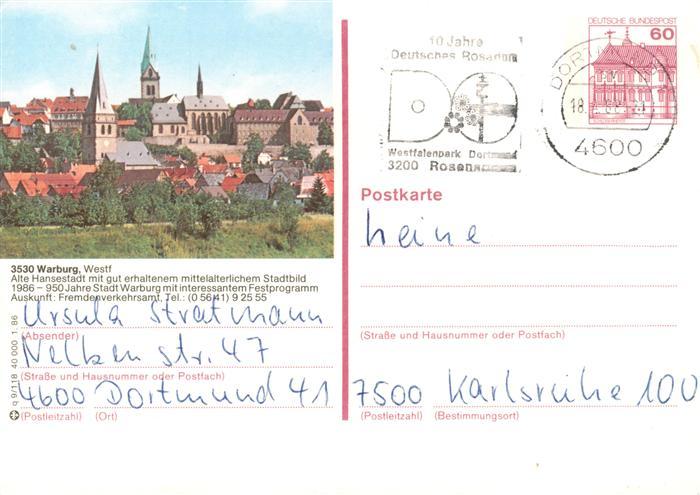 3530 Warburg, Westf
Alte Hansestadt mit gut erhaltenem mittelalterlichem Stadtbild
1986 – 950 Jahre Stadt Warburg mit interessantem Festprogramm
Auskunft: Fremdenverkehrsamt, Tel.: (0 56 41) 9 25 55
Ursula Stratmann
(Absender)
Nelken str. 47
(Straße und Hausnummer oder Postfach)
4600 Dortmund 41
(Postleitzahl) (Ort)
q 9/118 40 000 1.86
10 Jahre
Deutsches Rosarium
DO
Westfalenpark Dortmund
3200 Rosen
DEUTSCHE BUNDESPOST
60
4600
Postkarte
heine
(Straße und Hausnummer oder Postfach)
7500 Karlsruhe 100
(Postleitzahl) (Bestimmungsort)